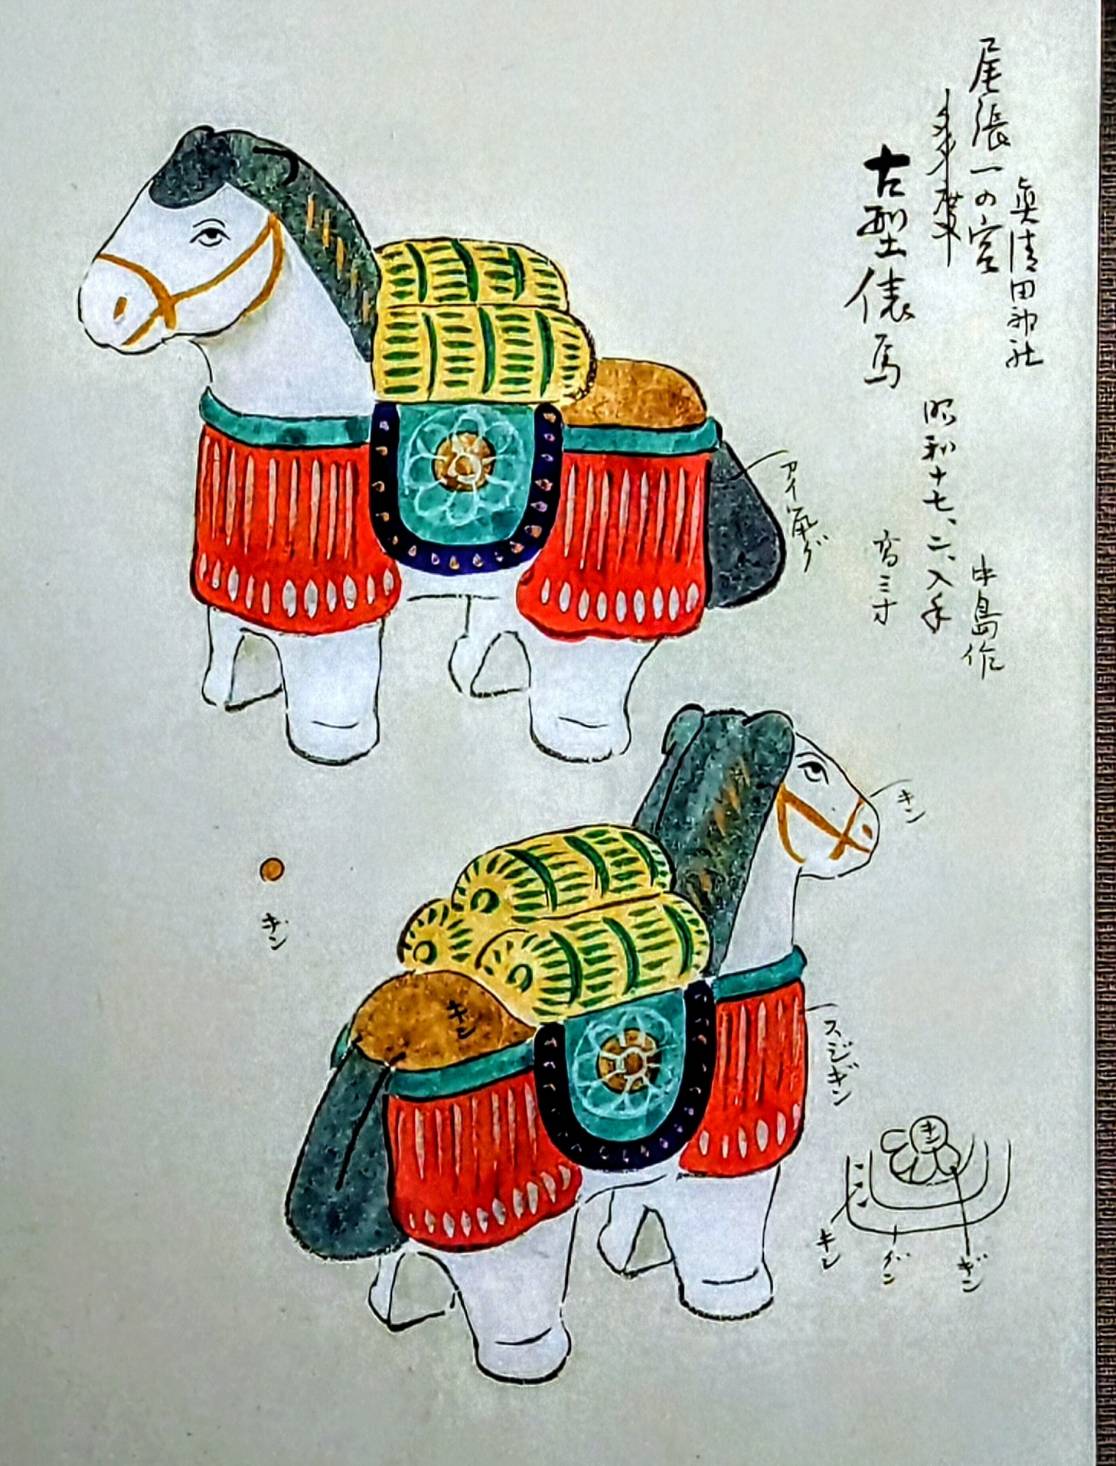 眞清田神社
尾張一の宮
古型俵馬
昭和十七、二、入手
中島作
高三寸
キン
キン
キン
スジギン
キン
キン
ギン